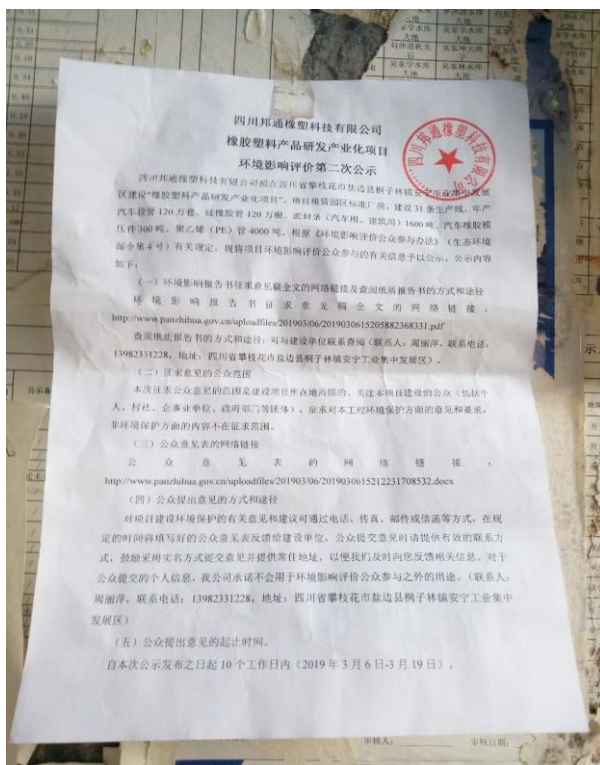 吴家学水库
大地
吴家坤大湾
四川邦通橡塑科技有限公司
橡胶塑料产品研发产业化项目
环境影响评价第二次公示
四川邦通橡塑科技有限公司
四川邦通橡塑科技有限公司拟在四川省攀枝花市盐边县桐子林镇安宁工业集中发展
区建设“橡胶塑料产品研发产业化项目”。项目租赁园区标准厂房，建设31条生产线，年产
汽车胶管120万套、硅橡胶管120万根、密封条（汽车用、建筑用）1600吨、汽车橡胶模
压件300吨、聚乙烯（PE）管4000吨。根据《环境影响评价公众参与办法》（生态环境
部令第4号）有关规定，现将项目环境影响评价公众参与的有关信息予以公示。公示内容
如下：
（一）环境影响报告书征求意见稿全文的网络链接及查阅纸质报告书的方式和途径
环境影响报告书征求意见稿全文的网络链接：
http://www.panzhihua.gov.cn/uploadfiles/201903/06/2019030615205882368331.pdf
查阅纸质报告书的方式和途径：可与建设单位联系查阅（联系人：周丽萍，联系电话：
13982331228，地址：四川省攀枝花市盐边县桐子林镇安宁工业集中发展区）。
（二）征求意见的公众范围
本次征求公众意见的范围是建设项目所在地周围的、关注本项目建设的公众（包括个
人、村社、企事业单位、政府部门等团体），征求对本工程环境保护方面的意见和要求，
非环境保护方面的内容不在征求范围。
（三）公众意见表的网络链接
公众意见表的网络链接：
http://www.panzhihua.gov.cn/uploadfiles/201903/06/2019030615212231708532.docx
（四）公众提出意见的方式和途径
对项目建设环境保护的有关意见和建议可通过电话、传真、邮件或信函等方式，在规
定的时间将填写好的公众意见表反馈给建设单位。公众提交意见时请提供有效的联系方
式，鼓励采用实名方式提交意见并提供常住地址，以便我们及时向您反馈相关信息。对于
公众提交的个人信息，我公司承诺不会用于环境影响评价公众参与之外的用途。（联系人：
周丽萍，联系电话：13982331228，地址：四川省攀枝花市盐边县桐子林镇安宁工业集中
发展区）
（五）公众提出意见的起止时间。
自本次公示发布之日起10个工作日内（2019年3月6日-3月19日）。
审核人：
审核日期：